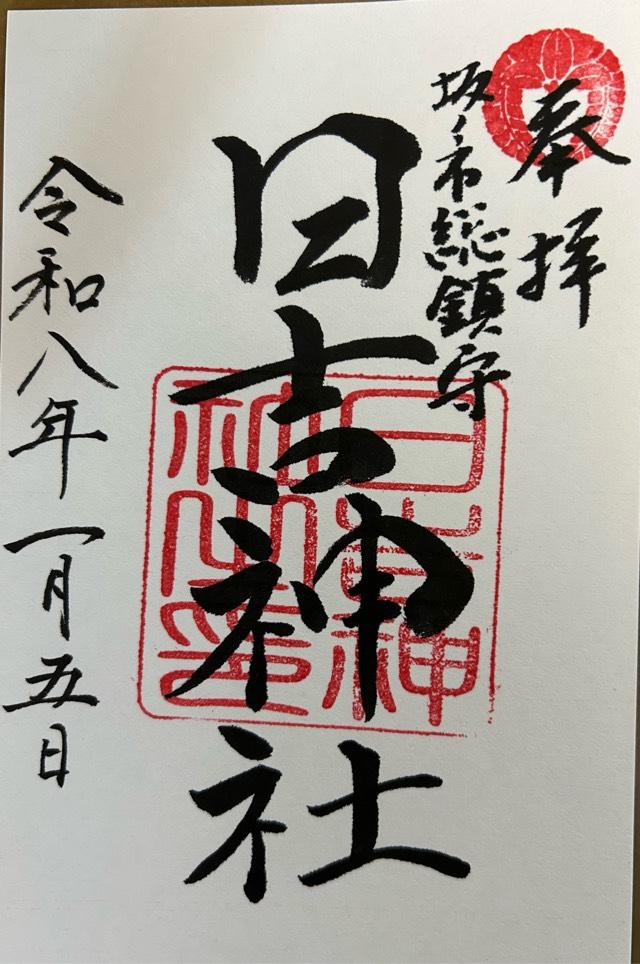 奉拝
坂ノ市総鎮守
日吉神社
日吉神社之印
令和八年一月五日